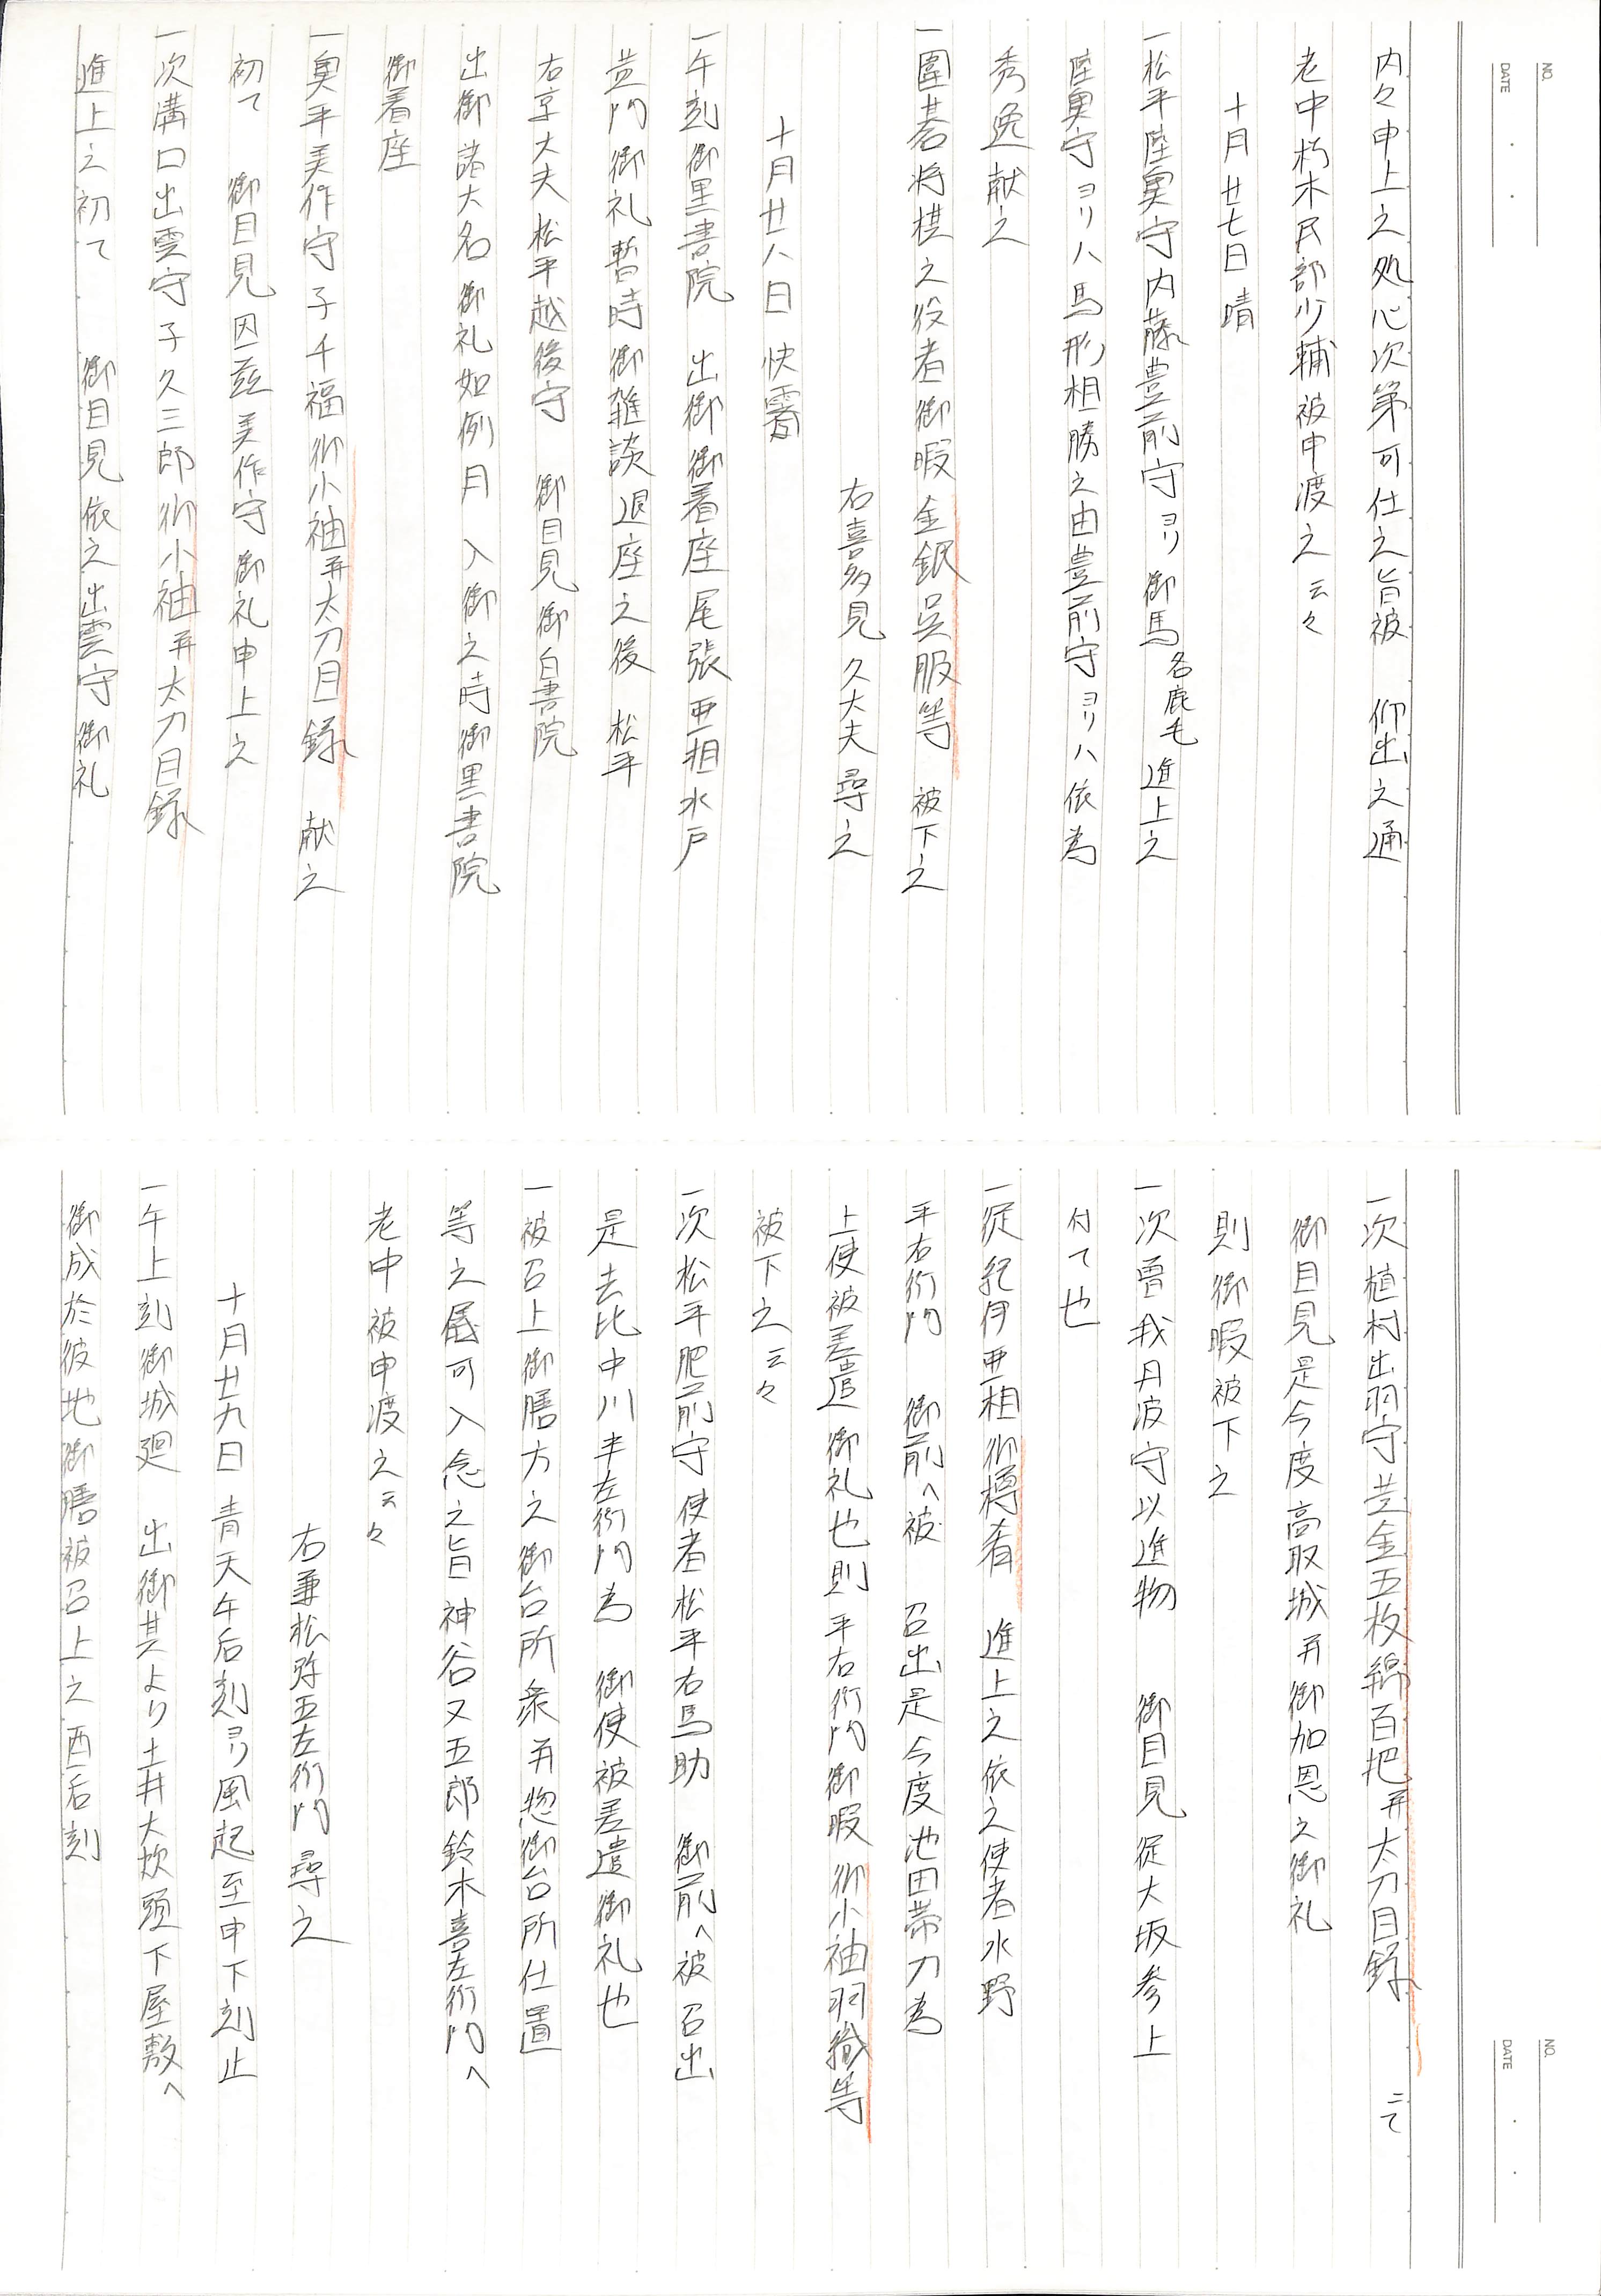 NO.
DATE
内々申上之処心次第可仕之旨被　仰出之通
老中朽木民部少輔被申渡之云々
十月廿七日 晴
一松平陸奥守内藤豊前守ヨリ御馬名鹿毛進上之
陸奥守ヨリハ馬形相勝之由豊前守ヨリハ依為
秀逸献之
一囲碁将棋之役者御暇金銀呉服等　被下之
右喜多見久大夫尋之
十月廿八日 快霽
一午刻御黒書院　出御御着座尾張亜相水戸
黄門御礼暫時御雑談退座之後　松平
右京大夫松平越後守　御目見御白書院
出御諸大名御礼如例月　入御之時御黒書院
御着座
一奥平美作守子千福御小袖并太刀目録　献之
初て　御目見因茲美作守御礼申上之
一次溝口出雲守子久三郎御小袖并太刀目録
進上之初て　御目見依之出雲守御礼
NO.
DATE
一次植村出羽守黄金五枚綿百把并太刀目録　ニて
御目見是今度高取城并御加恩之御礼
則御暇被下之
一次曽我丹波守以進物　御目見従大坂参上
付て也
一従紀伊亜相御樽肴　進上之依之使者水野
平右衛門　御前へ被　召出是今度池田帯刀為
上使被差遣御礼也則平右衛門御暇御小袖羽織等
被下之云々
一次松平肥前守使者松平右馬助　御前へ被召出
是去比中川半左衛門為　御使被差遣御礼也
一被召上御膳方之御台所衆并惣御台所仕置
等之儀可入念之旨神谷又五郎鈴木喜左衛門へ
老中被申渡之云々
右兼松弥五左衛門尋之
十月廿九日 青天午后刻ヨリ風起至申下刻止
一午上刻御城廻　出御其より土井大炊頭下屋敷へ
御成於彼地御膳被召上之酉后刻